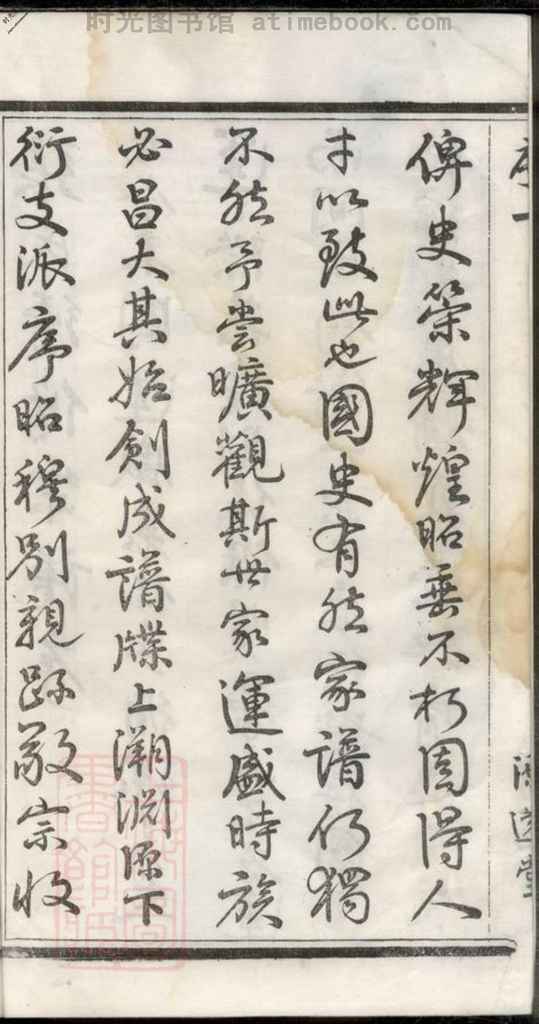 时光图书馆 atimebook.com
序一
俾史策輝煌昭垂不朽固得人
才以致此也國史有然家譜何獨
不然予嘗曠觀斯世家運盛時族
必昌大其始創成譜牒上溯淵源下
衍支派序昭穆別親疎敬宗收